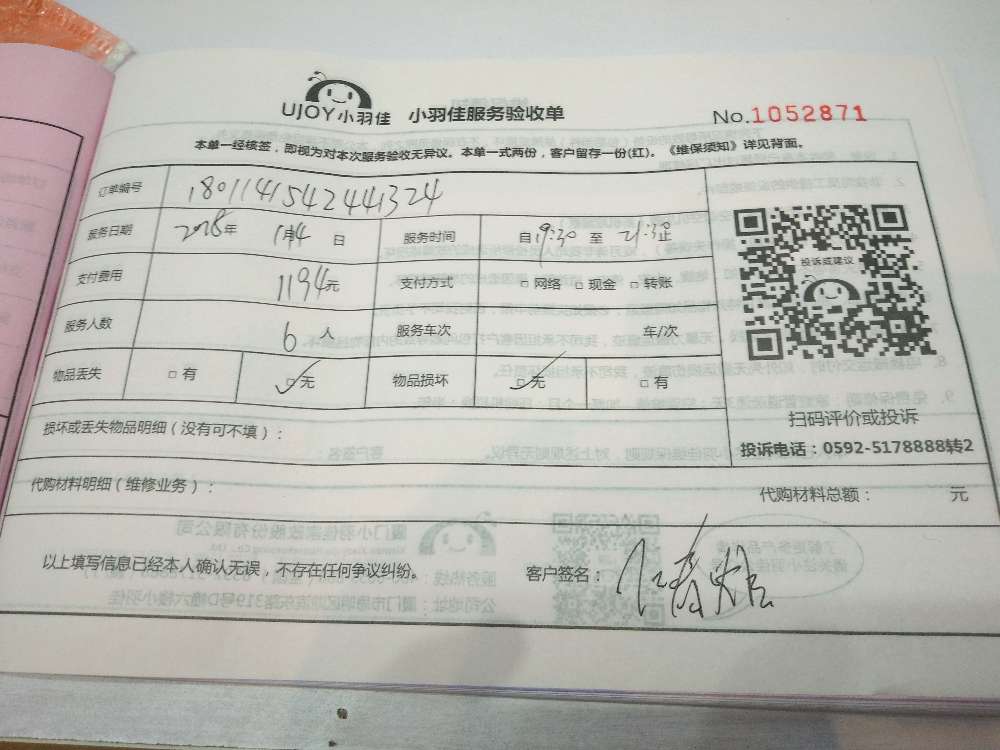 UJOY小羽佳 小羽佳服务验收单 No.1052871
本单一经核签，即视为对本次服务验收无异议。本单一式两份，客户留存一份(红)。《维保须知》详见背面。
订单编号 1801141542441324
服务日期 2018年 1月14日 服务时间 自19:30 至 21:30止
支付费用 1194元 支付方式 □ 网络 □ 现金 □ 转账
服务人数 6 人 服务车次 车/次
物品丢失 □ 有 □ 无 物品损坏 □ 无 □ 有
投诉或建议
扫码评价或投诉
投诉电话：0592-5178888转2
损坏或丢失物品明细（没有可不填）：
代购材料明细（维修业务）： 代购材料总额： 元
以上填写信息已经本人确认无误，不存在任何争议纠纷。 客户签名：